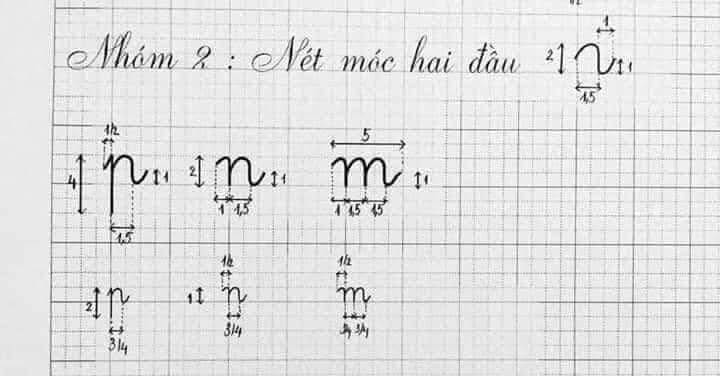 Nhóm 2 : Nét móc hai đầu 2 1 1 1,5
1/2 5
4 p 1 2 n 1 m 1
1,5 1 1,5 1 1,5 1,5
1/2 1/2
2 p 1 n m
3/4 3/4 3/4 3/4